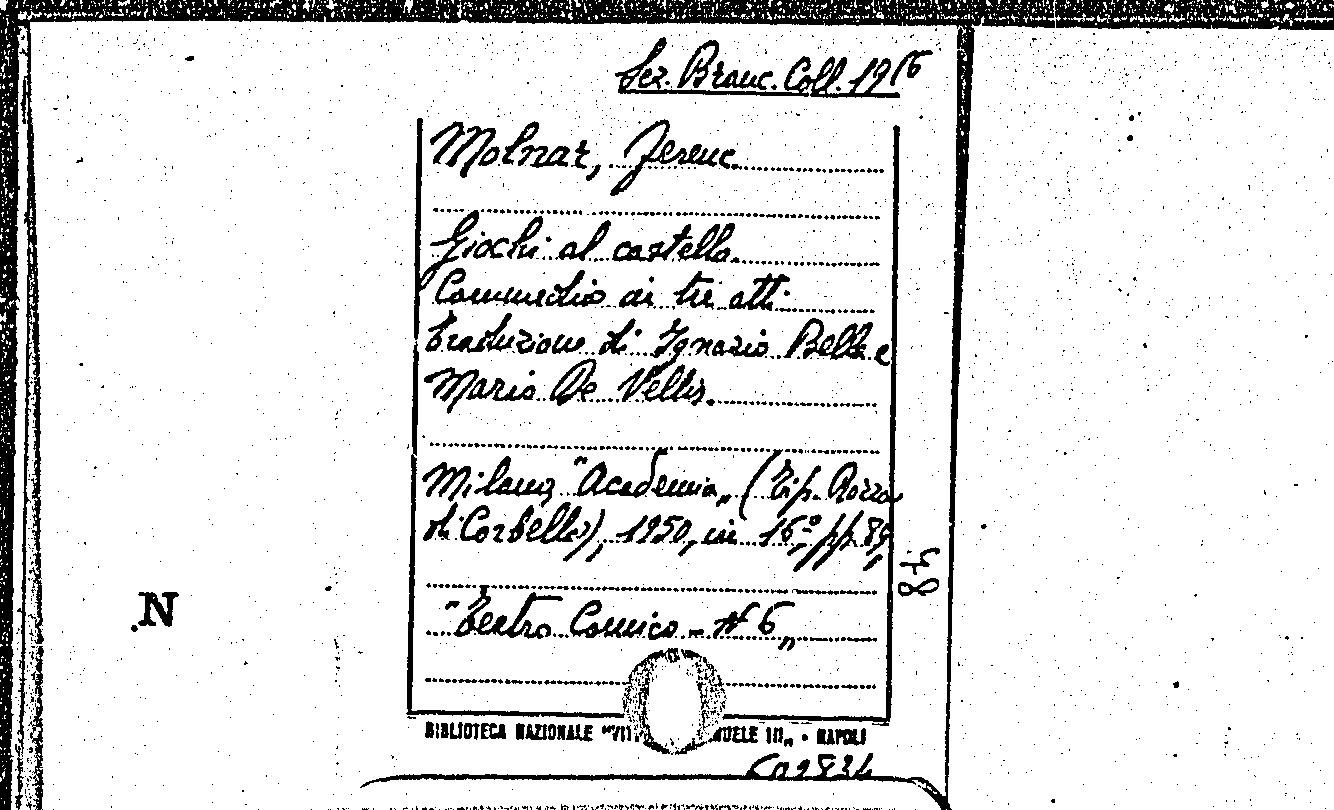 Sez. Branc. Coll. 1916
Molnar, Ferenc
Giochi al castello.
Commedia in tre atti.
traduzione di Ignazio Balla e
Mario De Vellis.
Milano, "Academia„ (Tip. Rozza
di Corbella), 1950, in 16º, pp. 89,
84
N
"Teatro Comico - N 6„
BIBLIOTECA NAZIONALE "VITT UELE III„ - NAPOLI